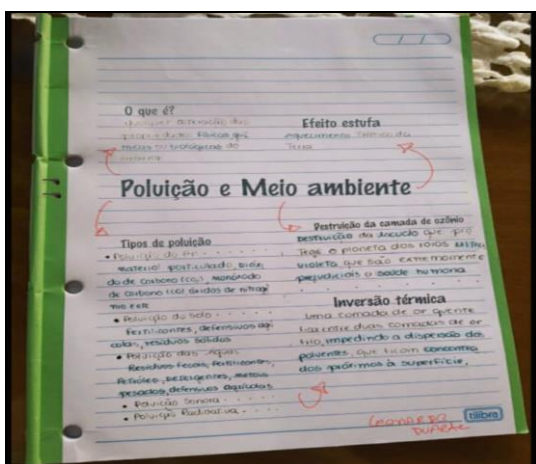 O que é?
qualquer alteração das
propriedades físicas quí
micas ou biológicas do
Efeito estufa
Aquecimento Térmico da
Terra
Poluição e Meio ambiente
Tipos de poluição
• Poluição do Ar
material particulado, dióxi
do de carbono (CO₂), monóxido
de carbono (CO) óxidos de nitrogê
nio
• Poluição do solo
Fertilizantes, defensivos agrí
colas, resíduos sólidos
• Poluição das águas
Resíduos fecais, fertilizantes,
Petróleo, detergentes, metais
pesados, defensivos agrícolas
• Poluição Sonora
• Poluição Radioativa
Destruição da camada de ozônio
Destruição da que pro
tege o planeta dos raios ultra
violeta que são extremamente
prejudiciais a saúde humana
Inversão térmica
uma camada de ar quente
fica entre duas camadas de ar
frio, impedindo a dispersão dos
poluentes, que ficam concentra
dos próximos à superfície.
Leonardo
Duarte
tilibra